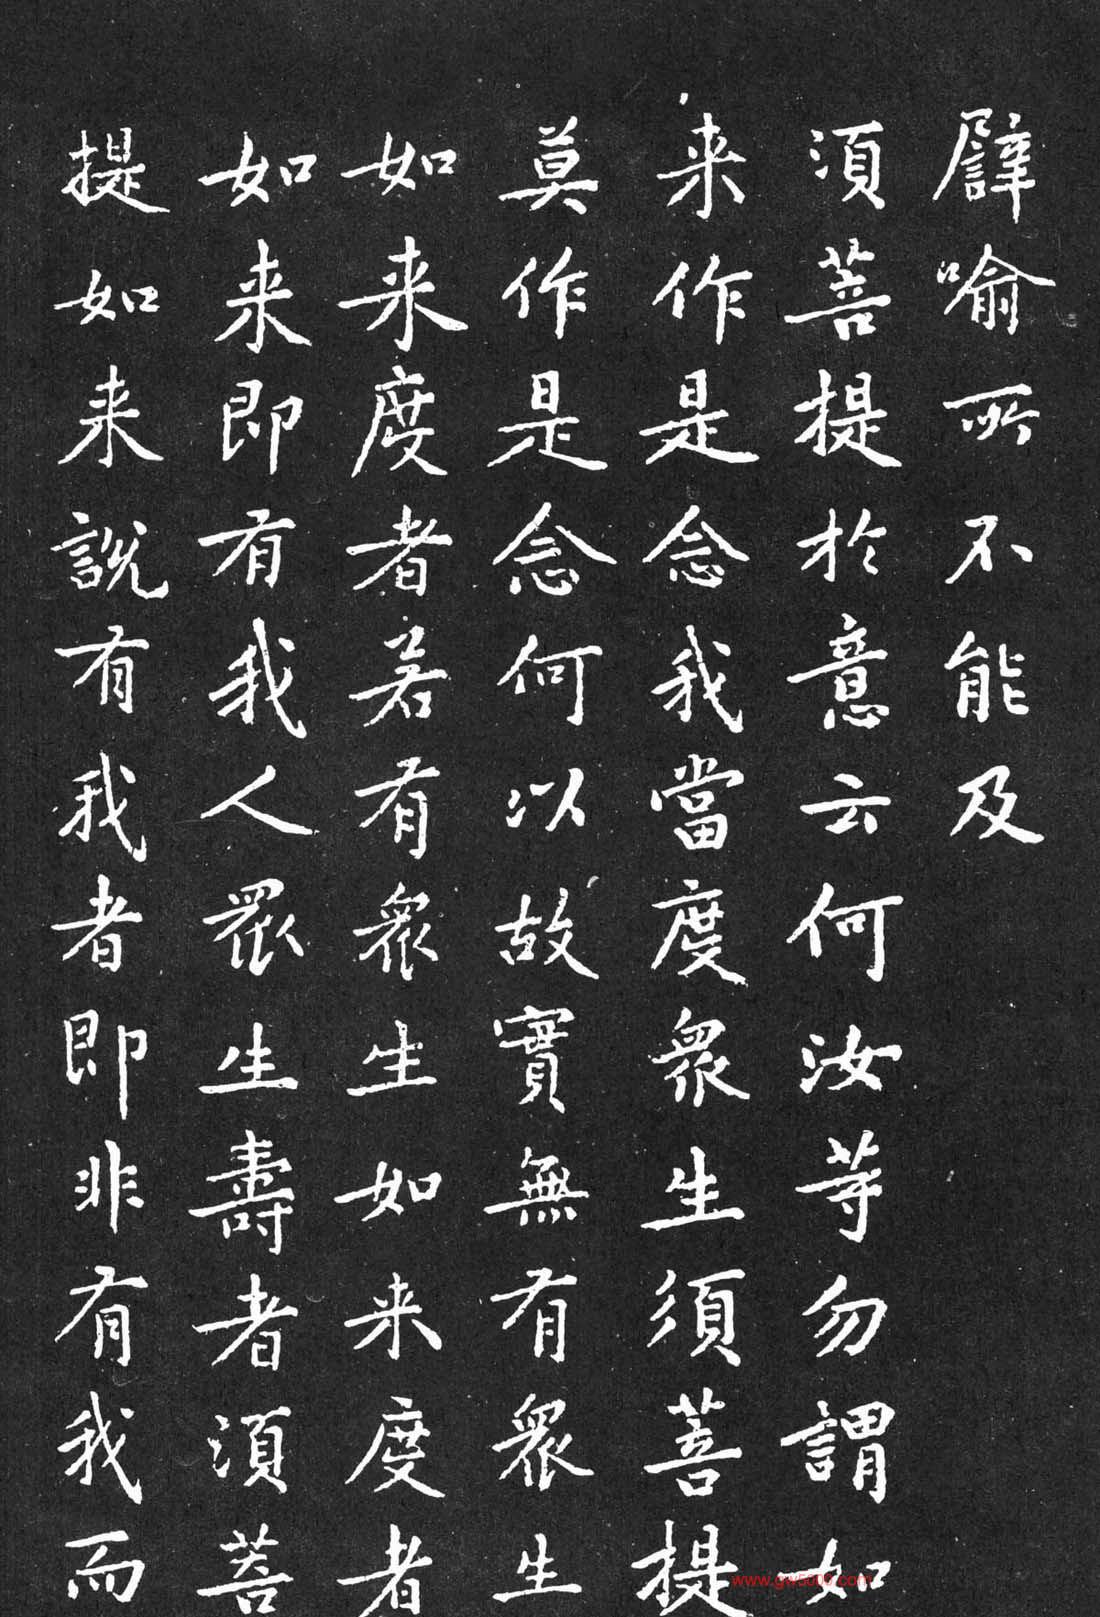 譬喻所不能及
須菩提於意云何汝等勿謂如
来作是念我當度眾生須菩提
莫作是念何以故實無有眾生
如来度者若有眾生如来度者
如来即有我人眾生壽者須菩
提如来說有我者即非有我而
www.gw5000.com